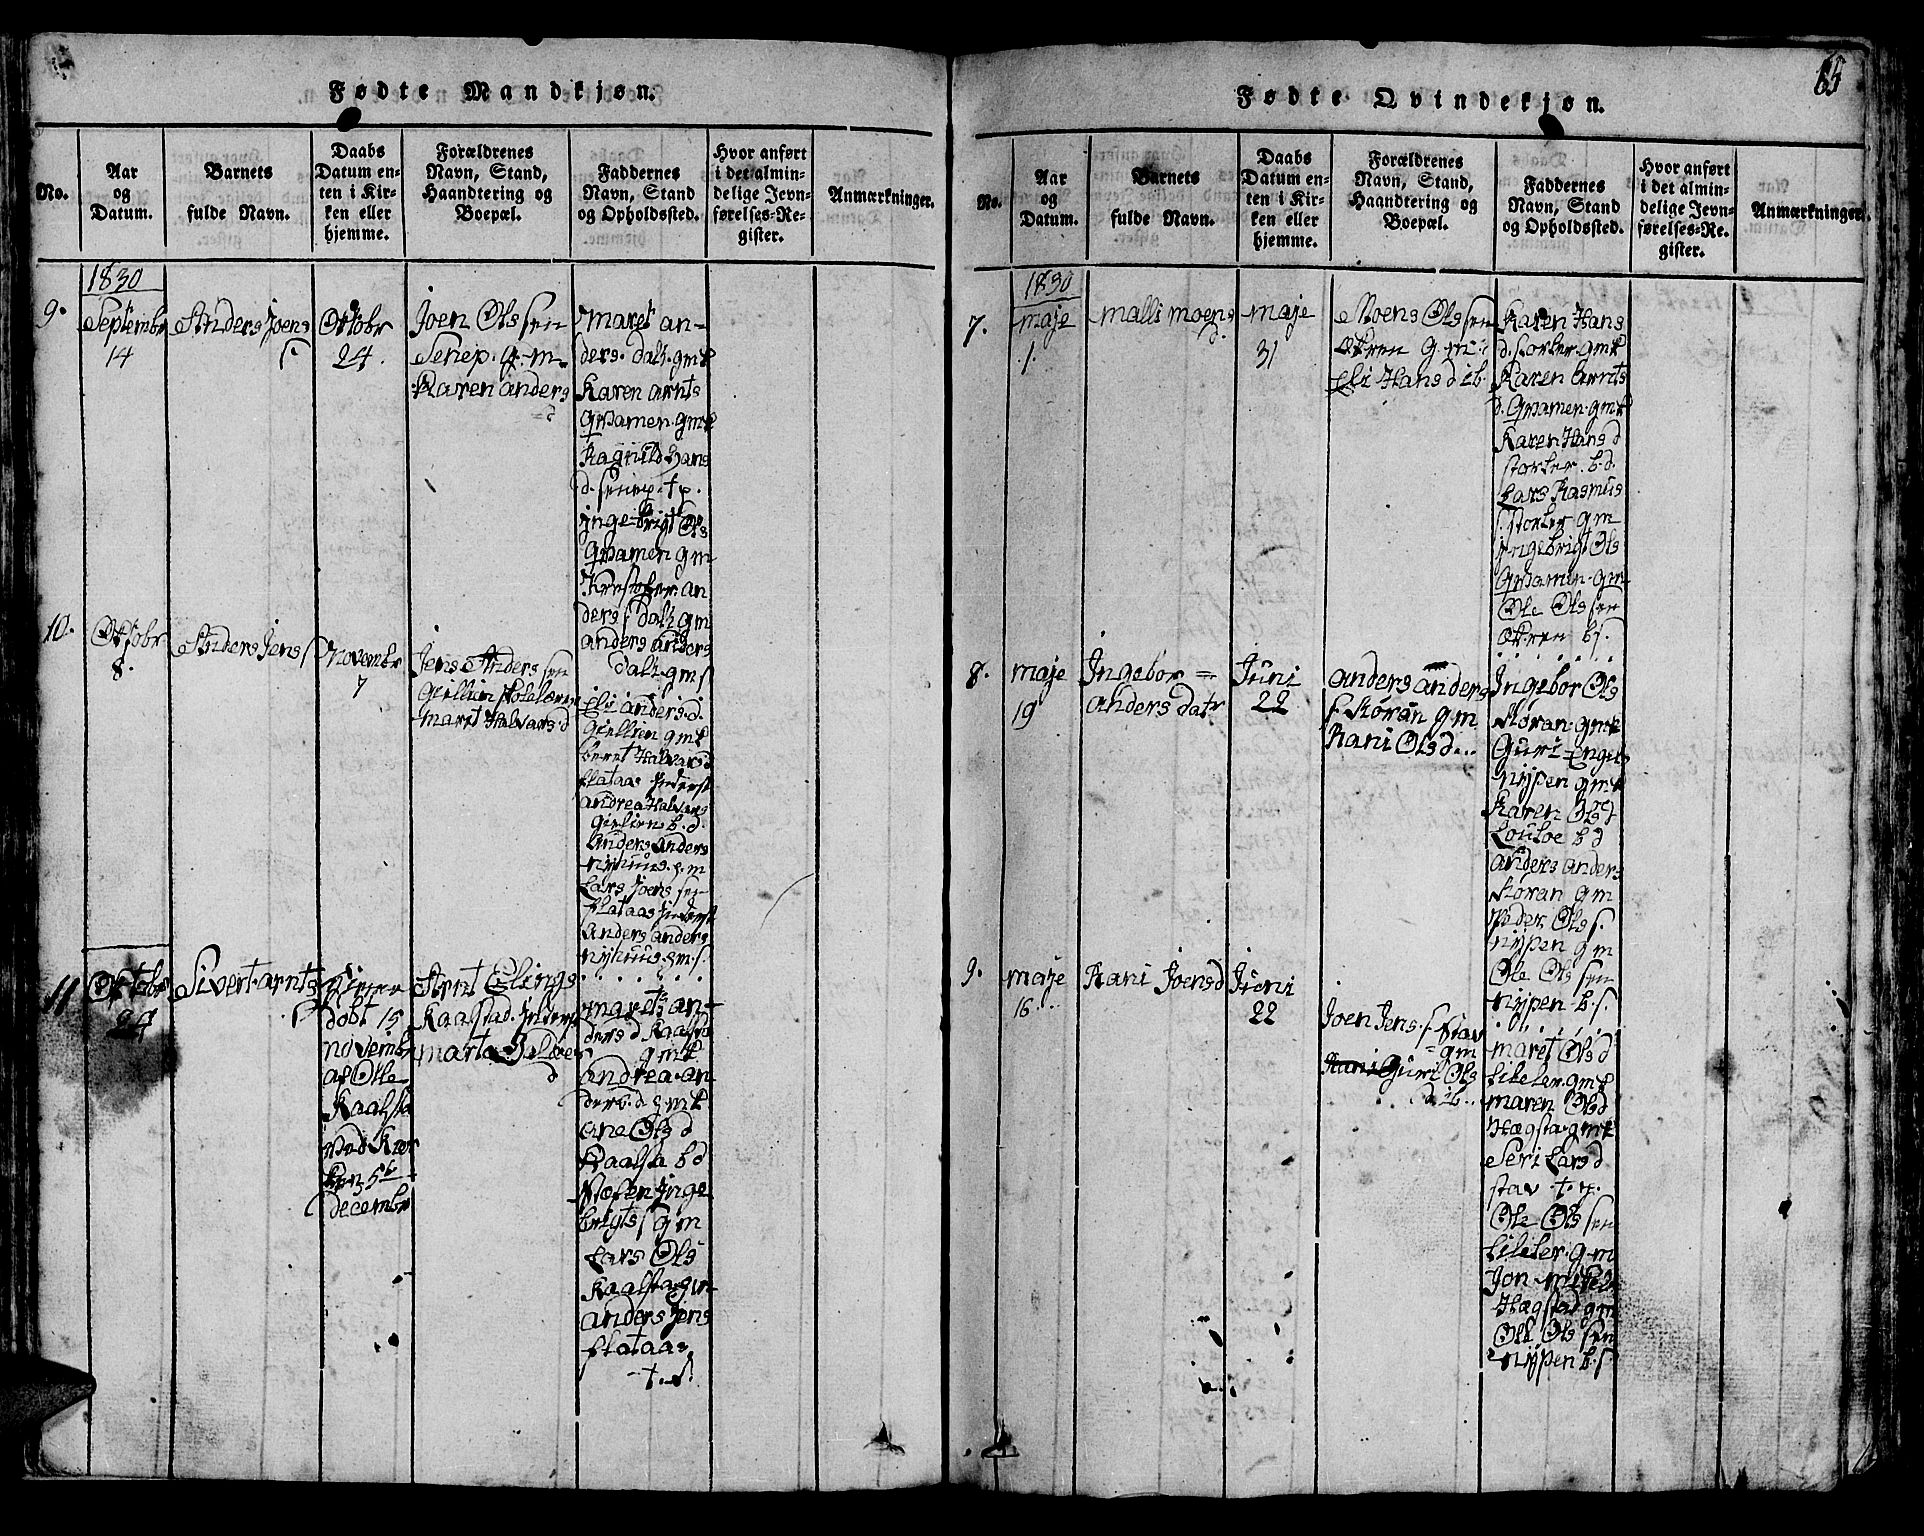 Fødte Mandkjøn.
No.
Aar
og
Datum.
Barnets
fulde Navn.
Daabs
Datum en-
ten i Kir-
ken eller
hjemme.
Forældrenes
Navn, Stand,
Haandtering og
Boepæl.
Faddernes
Navn, Stand
og Opholdssted.
Hvor anført
i det almin-
delige Jevn-
førelses-Re-
gister.
Anmærkninger.
1830
9.
Septembr
14
Anders Joens
s
Oktobr
24.
Joen Ols sen
Senep. g-m-
Karen anders
=d
maret an-
ders. dalz. gmk
Karen arnts
Qvamen. gmk
Ragnild hans
d. senep. t.p.
inge-brigt Ols
Qvamen gm-
Krestofer an
ders s dalz gm
anders anders
dalz. gm s
10.
Oktobr
8.
Anders Jens s
novembr
7
Jens Anders sen
Giellien skolelærer
maret Halvars d
Eli anders. d.
Giellien gmk
beret Halvars d
flataas inderst
andrea Halvars
Gielien b. d.
Anders anders
nyhuus. g. m
Lars Joens sen
flataas inderst
Anders anders
nyhuus. g m. s.
11
Oktobr
24
Sivert arnts
s
hiemme
døbt 15
novembr
af Ole
Kaalsta
ved Kier
ken 5te
decembr
Arnt Elings
Kaalstad. inderst
marta Halvor
d
maret an-
ders d Kaalsta
gmk
andrea an-
ders. d g mk
ane Ols d
Kaalsa b d
Inge
brigts s gm
Lars Ols
Kaalsta gm
anders Jens
flataas
t. s.
Fødte Qvindekjøn.
65
No.
Aar
og
Datum.
Barnets
fulde Navn.
Daabs
Datum en-
ten i Kir-
ken eller
hjemme.
Forældrenes
Navn, Stand,
Haandtering og
Boepæl.
Faddernes
Navn, Stand
og Opholdssted.
Hvor anført
i det almin-
delige Jevn-
førelses-Re-
gister.
Anmærkninger.
1830
7.
maje
1.
malli moens
d.
maje
31
Moens Ols sen
Økren g. m.
Eli Hans d ib.
Karen Hans
d. storler. gmk
Karen arnts
d. Qvamen. gmk
Karen Hans d
storler. b. d.
Lars Rasmus
s. storler gm
ingebrigt Ols
Qvamen. gm
Ole Ols sen
Økren b s.
8.
maje
19
Ingebor =
anders datr
Juni
22
anders anders
s. Røran gm
Rani Ols d...
Ingebor Ols
Røran. gmk
Guri Engels
nypen gmk
Karen Ols d
Louloe b d
anders anders
Røran gm
Peder Ols s.
nypen gm
Ole Ols sen
nypen b. s.
9.
maje
16...
Rani Joens d
Juni
22
Joen Jens. s Stav
= gm
Rani Guri Ols
d ib..
maret Ols d
Lileler. gmk
maren Ols d
Hægsta. gmk
Seri Lars d
stav t. p.
Ole Ols sen
Lileler. g. m
Jon mikels
Hægstad gm
Ole Ols sen
nypen b. s.